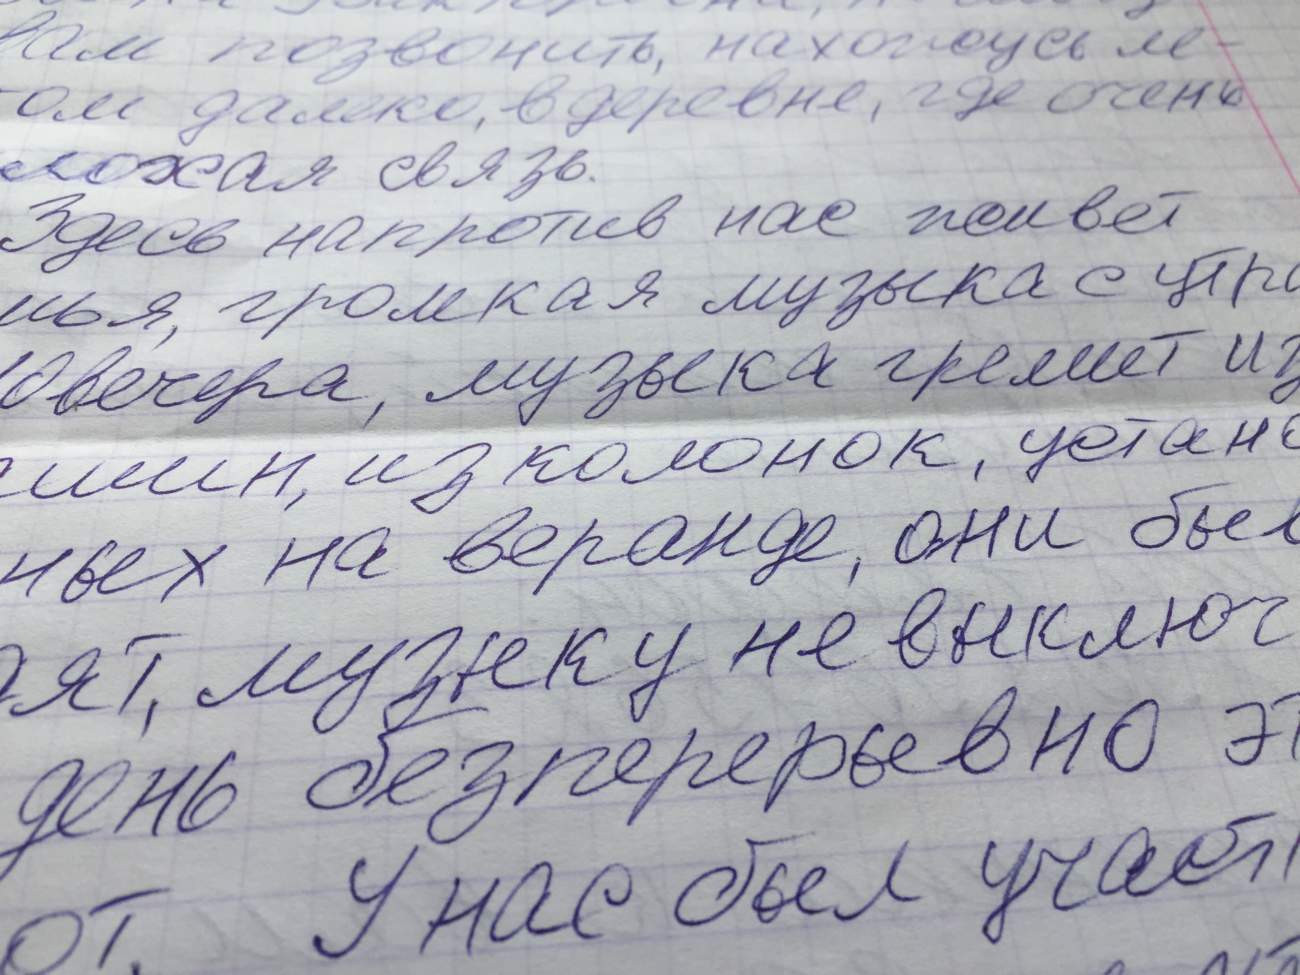 вам позвонить, нахожусь ле-
том далеко, в деревне, где очень
плохая связь.
Здесь напротив нас живет
мья, громкая музыка с утра
до вечера, музыка гремит из
ашин, из колонок, устано
ных на веранде, они быв
дят, музыку не выключ
день безперерывно эт
ют. У нас был участ